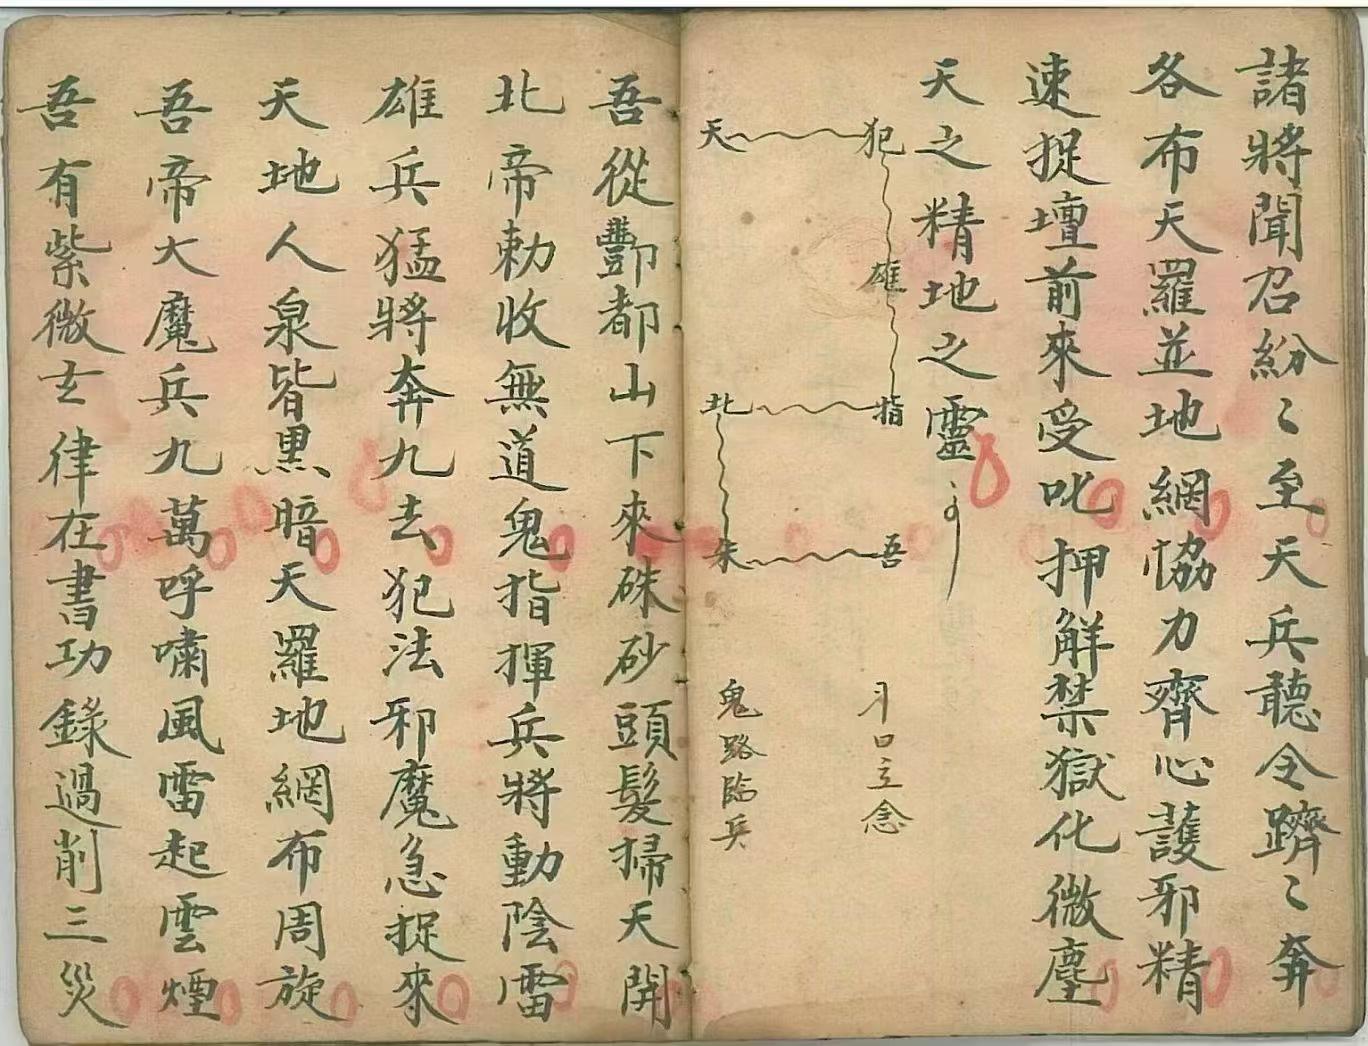 諸將聞召紛〻至天兵聽令躋〻奔
各布天羅並地網恊力齊心護邪精
速捉壇前來受叱押解禁獄化微塵
天之精地之靈
犯 天
雄
指 北
吾 朱
口立念
鬼路臨兵
吾從酆都山下來硃砂頭髮掃天開
北帝勅收無道鬼指揮兵將動陰雷
雄兵猛將奔九去犯法邪魔急捉來
天地人泉皆黑暗天羅地網布周旋
吾帝大魔兵九萬呼嘯風雷起雲煙
吾有紫微玄律在書功錄過削三災